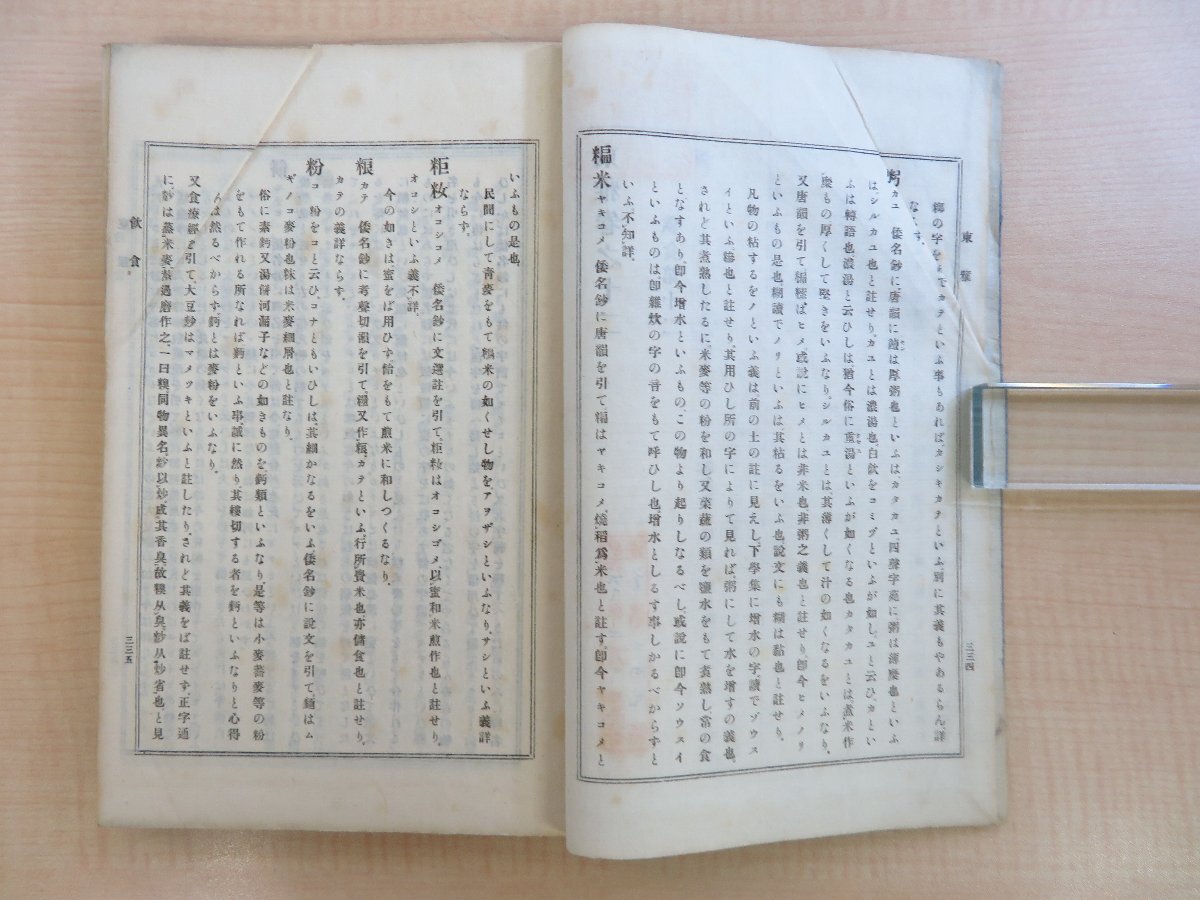 東雅
三三四
糧の字をよでカテといふ事もあれば、カシキカテといふ、別に其義もやあるらん詳
ならす。
粥カユ 倭名鈔に唐韻に饘は厚粥也といふはカタカユ、四聲字苑に粥は薄糜也といふ
はシルカユ也と註せり、カユとは濃湯也、白飮をコミヅといふが如し、ユと云ひカとい
ふは轉語也濃湯と云ひしは猶今俗に重湯といふが如くなる也カタカユとは煮米作
糜もの厚くして堅きをいふなり。シルカユとは其薄くして汁の如くなるをいふなり。
又唐韻を引て糄𥻨はヒメ、或説にヒメとは非米也非粥之義也と註せり、卽今ヒメノリ
といふもの是也糊讀てノリといふは、其粘るをいふ也、説文にも糊は黏也と註せり、
凡物の粘するをノといふ義は前の土の註に見えし、下學集に增水の字、讀でゾウス
イといふ、糝也と註せり、其用ひし所の字によりて見れば、粥にして水を增すの義也、
されど其煮熟したるに、米麥等の粉を和し又菜蔬の類を鹽水をもて煮熟し常の食
となすあり、卽今增水といふもの、この物より起りしなるべし、或説に卽今ゾウスイ
といふものは、卽雜炊の字の音をもて呼ひし也、增水としるす事しかるべからすと
いふ、不知詳、
糄米ヤキコメ 倭名鈔に唐韻を引て糄はヤキコメ、燒稻爲米也と註す、卽今ヤキコメと
いふもの是也、
民間にして靑麥をもて糄米の如くせし物を、アヲザシといふなり、サシといふ義詳
ならす。
粔籹オコシコメ 倭名鈔に文選註を引て、粔籹はオコシゴメ、以蜜和米煎作也と註せり、
オコシといふ義不詳、
今の如きは蜜をば用ひず、飴をもて煎米に和しつくるなり、
粮カテ 倭名鈔に考聲切韻を引て糧又作粮、カテといふ、行所賷米也亦儲食也と註せり、
カテの義詳ならす。
粉コ 粉をコと云ひ、コナともいひしは、其細かなるをいふ倭名鈔に説文を引て、麵はム
ギノコ麥粉也䊳は米麥細屑也と註なり、
俗に素麪又湯餠河漏子などの如きものを麪類といふなり、是等は小麥蕎麥等の粉
をもて作れる所なれば麪といふ事誠に然り、其縷切する者を麪といふなりと心得
ぬは然るべからす麪とは麥粉をいふなり。
又食療經を引て大豆麨はマメツキといふと註したり、されど其義をば註せす、正字通
に、麨は蒸米麥熬過磨作之、一曰糗、同物異名、麨以炒、成其香臭故糗从臭、麨从炒省也、と見
飮食
三三五